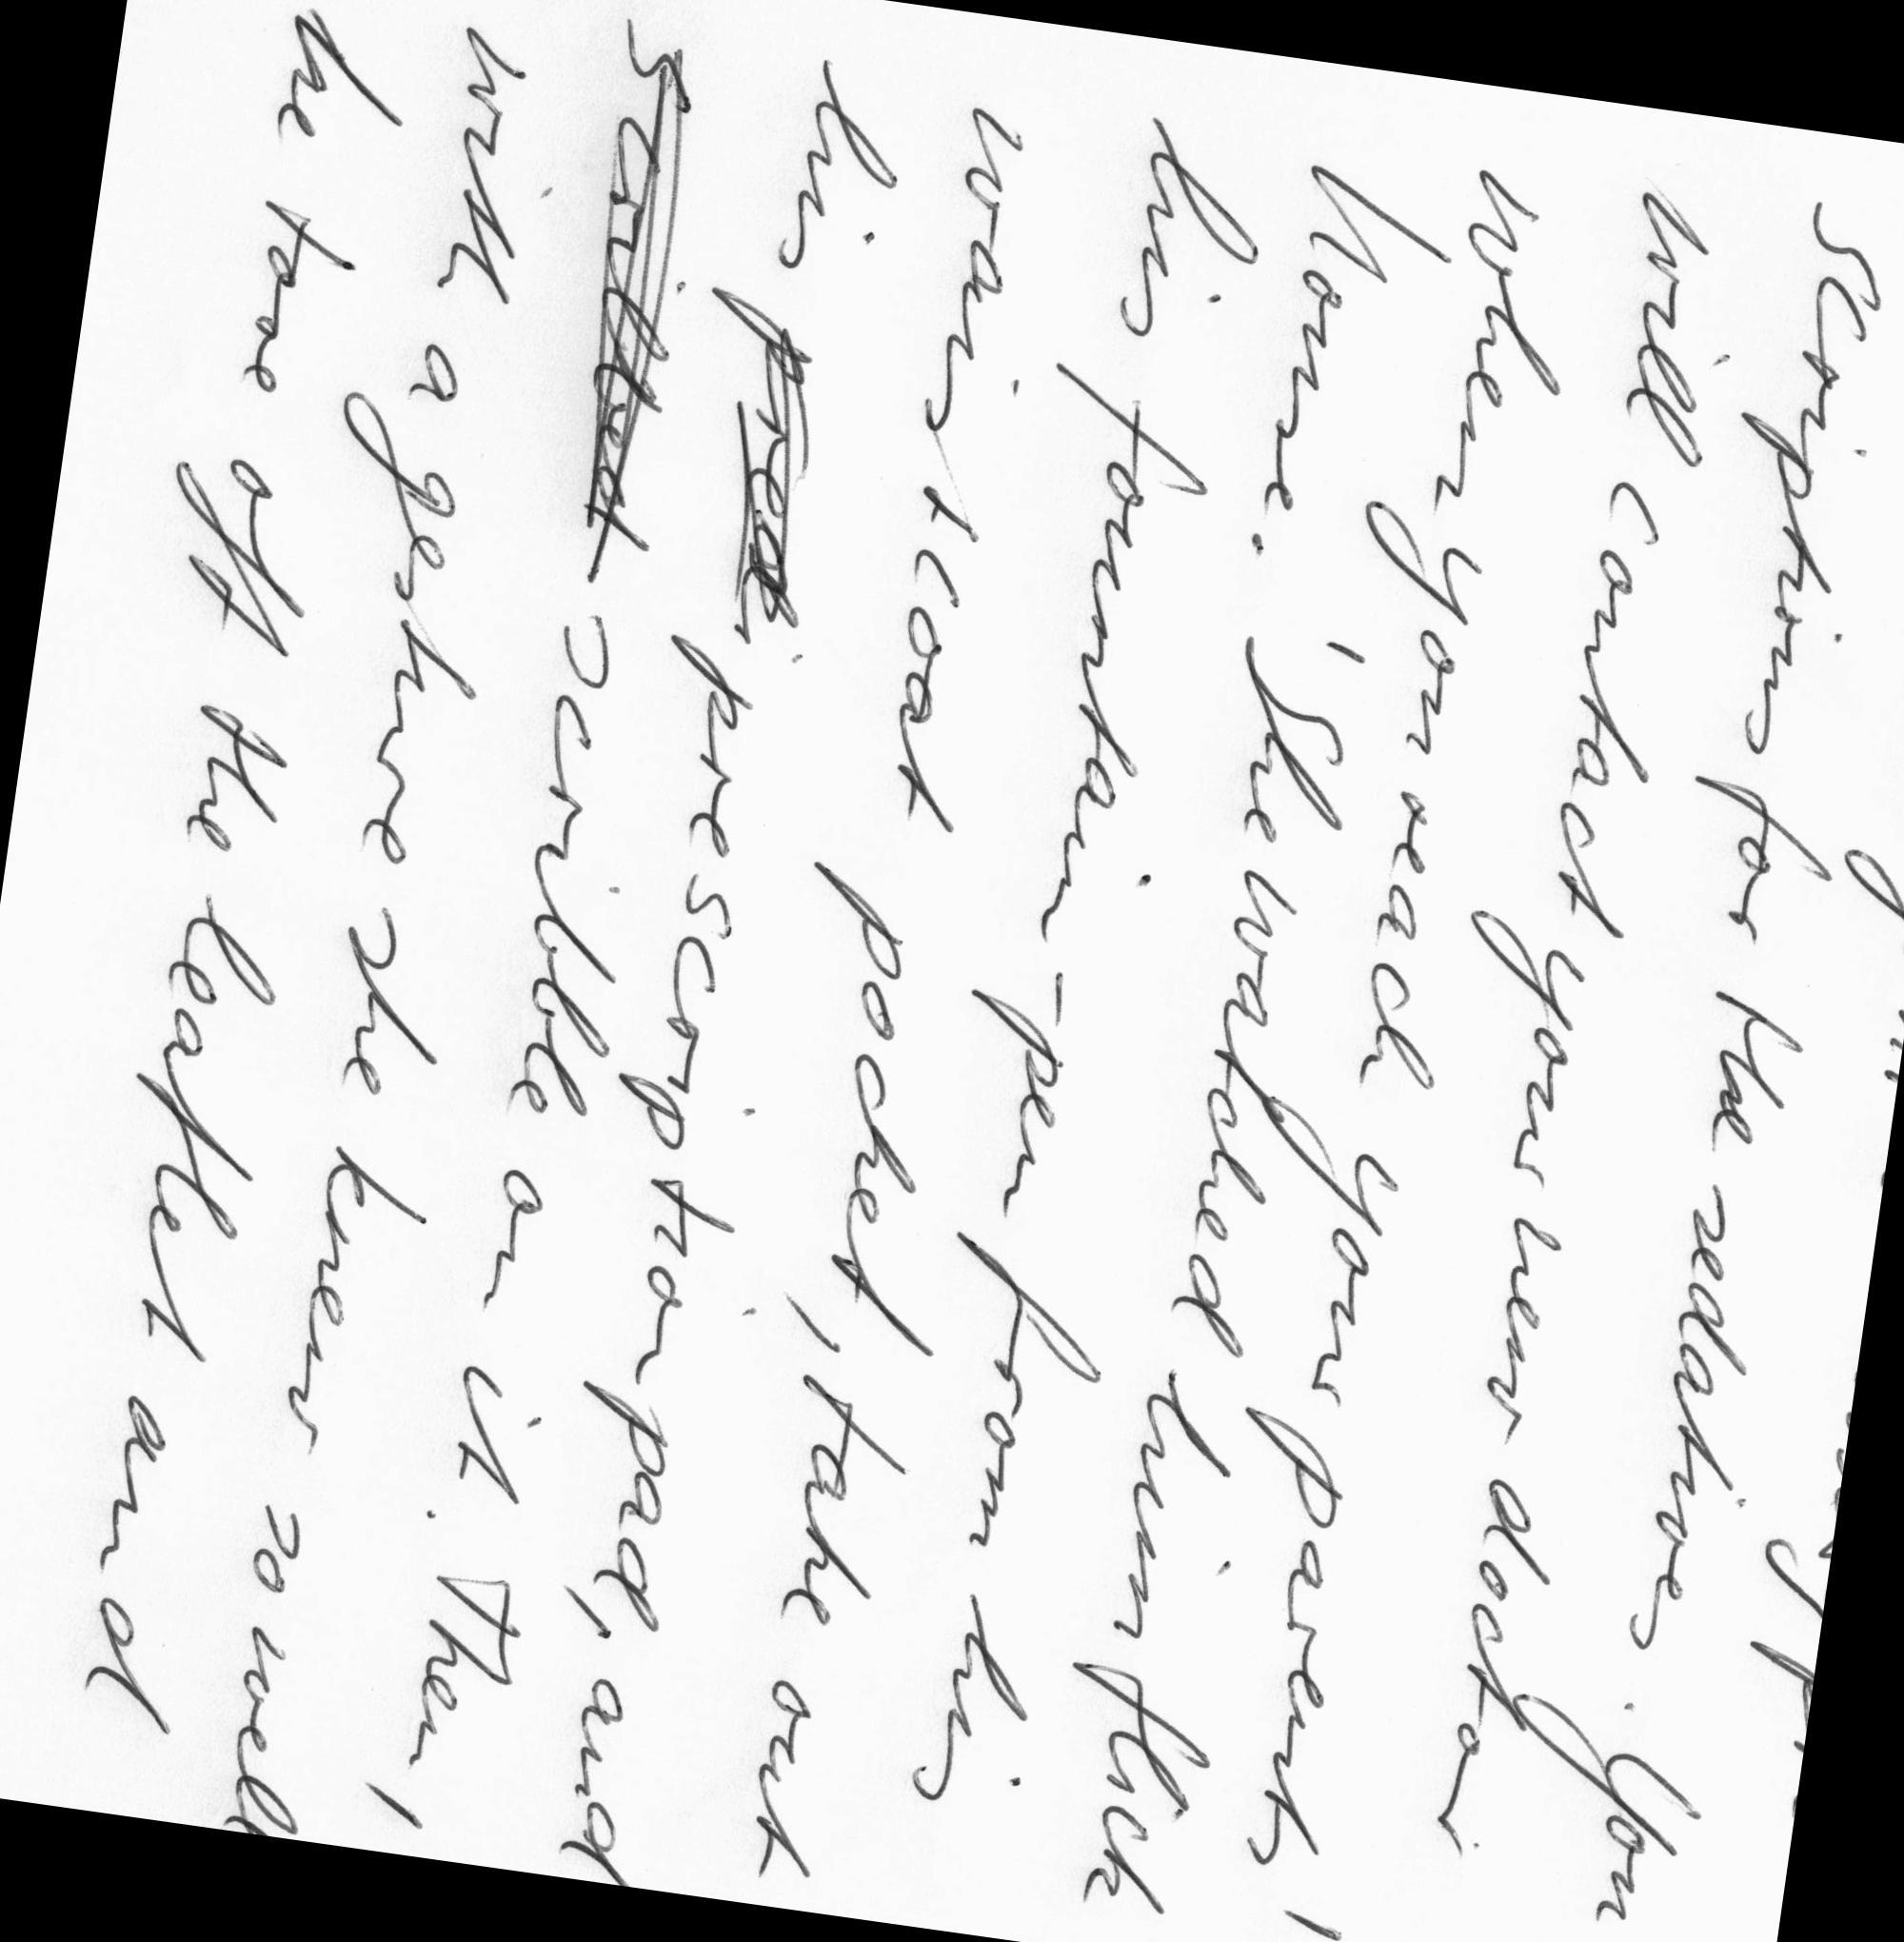 scriptions for the sedatives. You
will contact your new doctor
when you reach your parents'
home. She watched him flick
his fountain-pen from his
waistcoat pocket, take out
his prescription pad, and
scribble on it. Then,
with a gesture she knew so well
he tore off the leaflet and